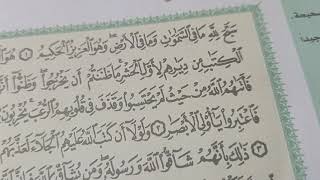 صحيحة.
جيد
سَبَّحَ لِلَّهِ مَا فِي السَّمَٰوَٰتِ وَمَا فِي الْأَرْضِ وَهُوَ الْعَزِيزُ الْحَكِيمُ ١ هُوَ
الْكِتَٰبِ مِن دِيَٰرِهِمْ لِأَوَّلِ الْحَشْرِ مَا ظَنَنتُمْ أَن يَخْرُجُوا وَظَنُّوا
فَأَتَىٰهُمُ اللَّهُ مِنْ حَيْثُ لَمْ يَحْتَسِبُوا وَقَذَفَ فِي قُلُوبِهِمُ الرُّعْبَ يُخْرِبُونَ
فَاعْتَبِرُوا يَٰأُولِي الْأَبْصَٰرِ ٢ وَلَوْلَا أَن كَتَبَ اللَّهُ عَلَيْهِمُ الْجَلَاءَ لَعَذَّبَهُمْ
٣ ذَٰلِكَ بِأَنَّهُمْ شَاقُّوا اللَّهَ وَرَسُولَهُ وَمَن يُشَاقِّ